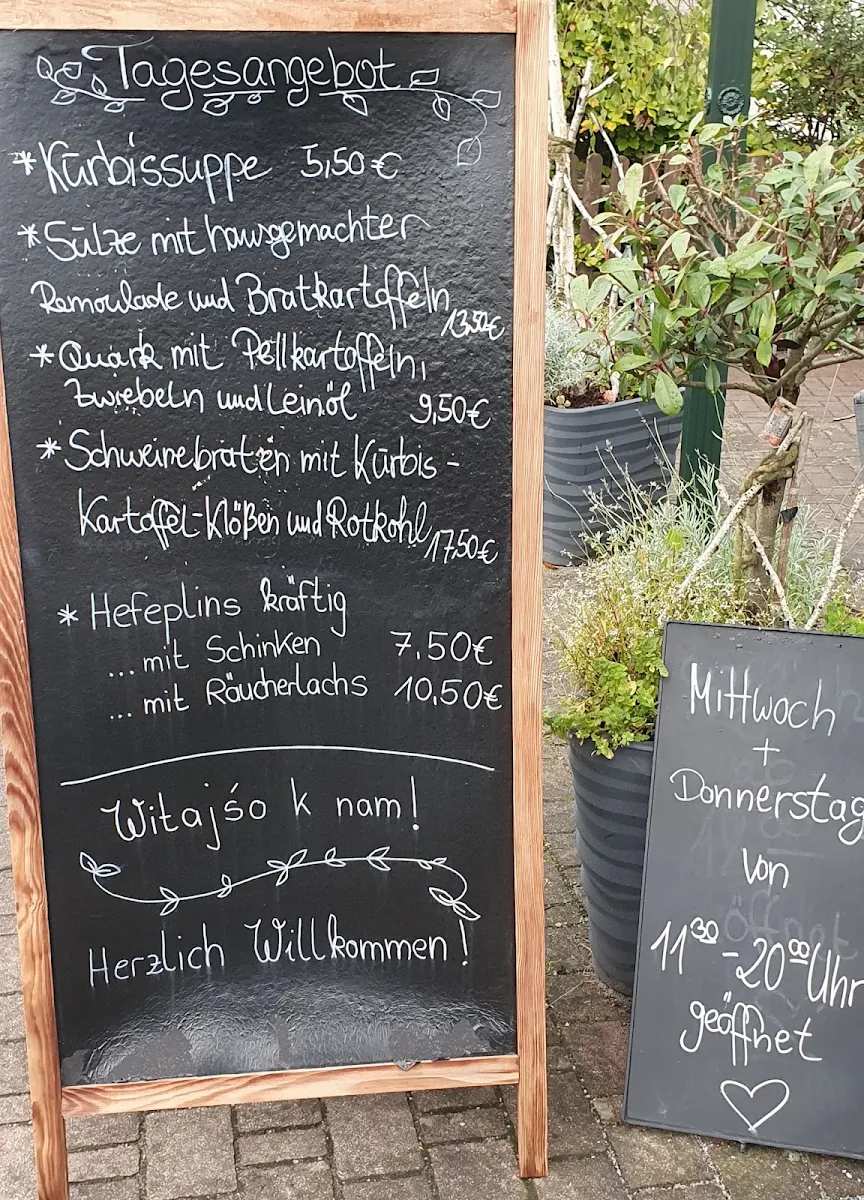 Tagesangebot
* Kürbissuppe 5,50€
* Sülze mit hausgemachter
Remoulade und Bratkartoffeln
13,50€
* Quark mit Pellkartoffeln,
Zwiebeln und Leinöl 9,50€
* Schweinebraten mit Kürbis-
Kartoffel-Klößen und Rotkohl
17,50€
* Hefeplins kräftig
... mit Schinken 7,50€
... mit Räucherlachs 10,50€
Witajśo k nam!
Herzlich Willkommen!
Mittwoch
+
Donnerstag
von
11³⁰-20⁰⁰ Uhr
geöffnet